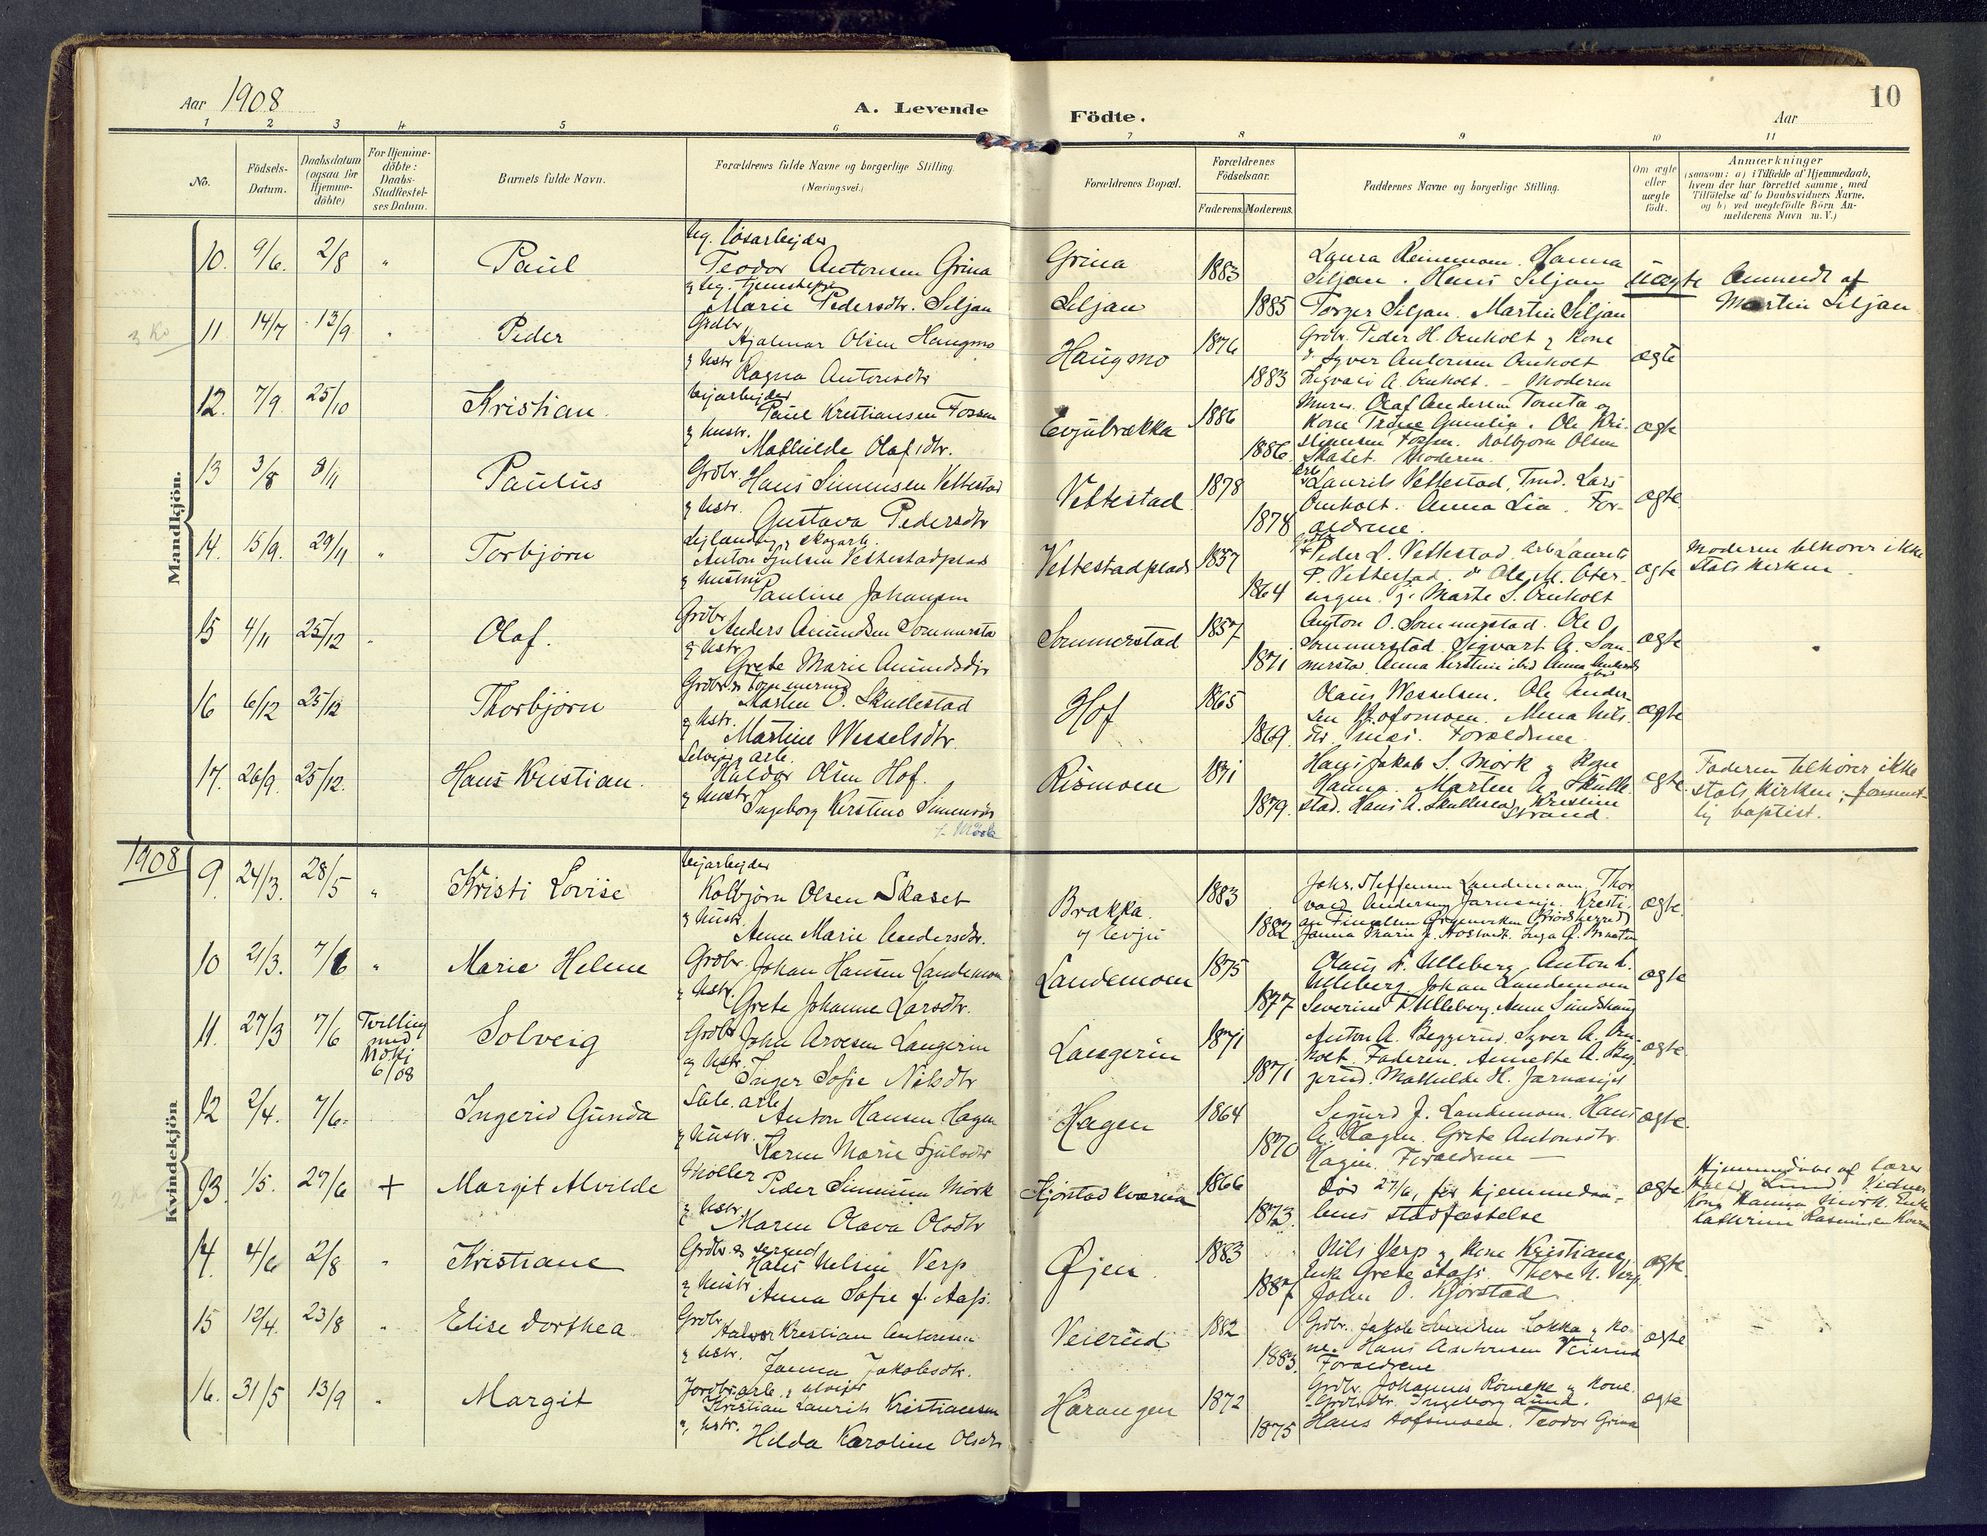 Aar 1908
A. Levende Födte.
Aar
10
1 2 3 4 5 6 7 8 9 10 11
No.
Födsels-Datum.
Daabsdatum (ogsaa for Hjemme-döbte)
For Hjemme-döbte: Daabs-Stadfæstel-ses Datum.
Barnets fulde Navn.
Forældrenes fulde Navne og borgerlige Stilling. (Næringsvei.)
Forældrenes Bopæl.
Forældrenes Födselsaar.
Faderens. Moderens.
Faddernes Navne og borgerlige Stilling.
Om ægte eller uægte födt.
Anmærkninger
(saasom: a) i Tilfælde af Hjemmedaab, hvem der har forrettet samme, med Tilföielse af to Daabsvidners Navne, og b) ved uægtefödte Börn An-melderens Navn m. V.)
Mandkjön.
10. 9/6. 2/8 " Paul
Ug. løsarbejder
Teodor Antonsen Grina
Marie Pedersdtr. Siljan
Grina
Siljan
1883
1885
Siljan. Hans Siljan
Torger Siljan. Martin Siljan
uægte
Anmeldt af
Martin Siljan
11. 14/7 13/9 " Peder
Grdbr.
Hjalmar Olsen Haugmo
& Hstr.
Ragna Antonsdtr
Haugmo
1876
1883
Grdbr. Peder H. Omholt & Kone
Syver Antonsen Omholt
A. Omholt. - Moderen
ægte
12. 7/9. 25/10 Kristian.
Vejarbejder
Paul Kristiansen Fossen
& Hustr.
Mathilde Olafsdtr.
Evjubrækka
1886
1886
Murer. Olaf Andersen Tomta og
Kone. Ole Kri-
stiansen Fossen. Kolbjørn Olsen
Skaset. Moderen.
ægte
13 3/8 8/11 Paulus
Grdbr.
Hans Simensen Vettestad
& Hstr.
Gustava Pedersdtr
Vettestad
1878
1878
Laurits Vettestad, Lars
Omholt. Anna Lia. For-
ældrene.
ægte
14. 15/9. 29/11 " Torbjørn
Lejlænding & skogarb.
Anton Sjulsen Vettestadplads
& Hustru
Pauline Johansen
Vettestadplads
1857
1864
Peder L. Vettestad. arb. Laurits
P. Vettestad. Ole M.
& Marte S. Omholt
ægte
Moderen tilhører ikke
Statskirken.
15 4/11 25/12 " Olaf.
Grdbr.
Anders Amundsen Sommerstad
& Hstr.
Grete Marie Amundsdtr
Sommerstad
1857
1871
Anton O. Sommerstad. Ole O.
Sommerstad. Sigvart A. Som-
merstad. Anna Kirstine ibid
ægte
16 6/12 25/12 Thorbjørn
Grdbr. & Tømmermd
Martin O. Skullestad
& Hstr.
Martine Wesselsdtr.
Hof
1865
1869.
Olaus Wesselsen. Ole Ander-
sen Hofsmoen. Mena Nils-
dtr. Forældrene
ægte
17. 26/9. 25/12. Hans Kristian.
Selvejer & arb.
Haldor Olsen Hof.
& Hustr.
Ingeborg Kirstine Simensdtr
f. Mörk
Rismoen
1871
1879.
Hans Jakob S. Mörk & Kone
Hanna. Marten A. Skulle-
stad. Hans A. Skullestad, Kristine
Strand.
ægte.
Faderen tilhører ikke
statskirken; forment-
lig baptist.
1908
Kvindekjön
9. 24/3. 28/5 " Kristi Lovise
Vejarbejder
Kolbjörn Olsen Skaset
& Hustr.
Anne Marie Andersdtr.
Brakka.
og Evju
1883
1882
Johs. Steffensen Landemoen. Thor-
vald Andersen. Kristi-
ægte.
10 21/3. 7/6 " Marie Helene
Grdbr. Johan Hansen Landemoen
& Hstr.
Grete Johanne Larsdtr.
Landemoen
1875
1877
Olaus L. Ulleberg. Anton L.
Ulleberg Johan Landemoen
Severine L. Ulleberg. Anne Sundshaug
ægte
11. 27/3 7/6 Tvilling
med
No 6/08
Solveig
Grdbr John Arvesen Langerin
& Hstr.
Inger Sofie Nilsdtr
Langerin
1871
1871
Anton A. Beggerud. Syver A. Om-
holt. Faderen. Annette A. Beg-
gerud. Mathilde H. Jarnæs
ægte
12 2/4. 7/6. Ingerid Gunda
arb
Anton Hansen Hagen
& Hustr.
Karen Marie Sjulsdtr
Hagen
1864
1870
Sigurd J. Landemoen. Hans
A. Hagen. Grete Antonsdtr.
Hagen. Forældrene -
ægte.
13. 1/5. 27/6 + Margit Alvilde
Møller
Peder Simensen Mörk
& Hstr.
Maren Olava Olsdtr
Kjörstad kværn
1866
1873.
Död 27/6, för hjemmedaa-
bens stadfæstelse
ægte.
Hjemmedöbt af Lærer
Lund. Vidner
Kone Hanna Mörk. Enke
Kathrine Rasmussen
14. 4/6 2/8 " Kristiane
Grdbr.
Hans Nelsen Verp
& Hustr
Anna Sofie f. Aass.
Øjen.
1883
1887
Nils Verp & Kone Kristiane
Enke Grete Aass. Thore N. Verp
John O. Kjörstad
ægte.
15 12/4. 23/8 " Elise Dorthea.
Grdbr.
Kristian Antonsen
& Hstr.
Janna Jakobsdtr.
Veierud
1882
1883
Grdbr. Jakob Svendsen Lokka & Ko-
ne. Hans Antonsen Veierud
Forældrene
ægte
16. 31/5 13/9 " Margit
Jordbr.arb. & selvejer
Kristian Laurits Kristiansen
& Hstr.
Hilda Karoline Olsdtr
Harangen
1872
1875
Grdbr. Johannes & Kone.
Ingeborg Lund.
Hans Hofsmoen. Teodor Grina
ægte